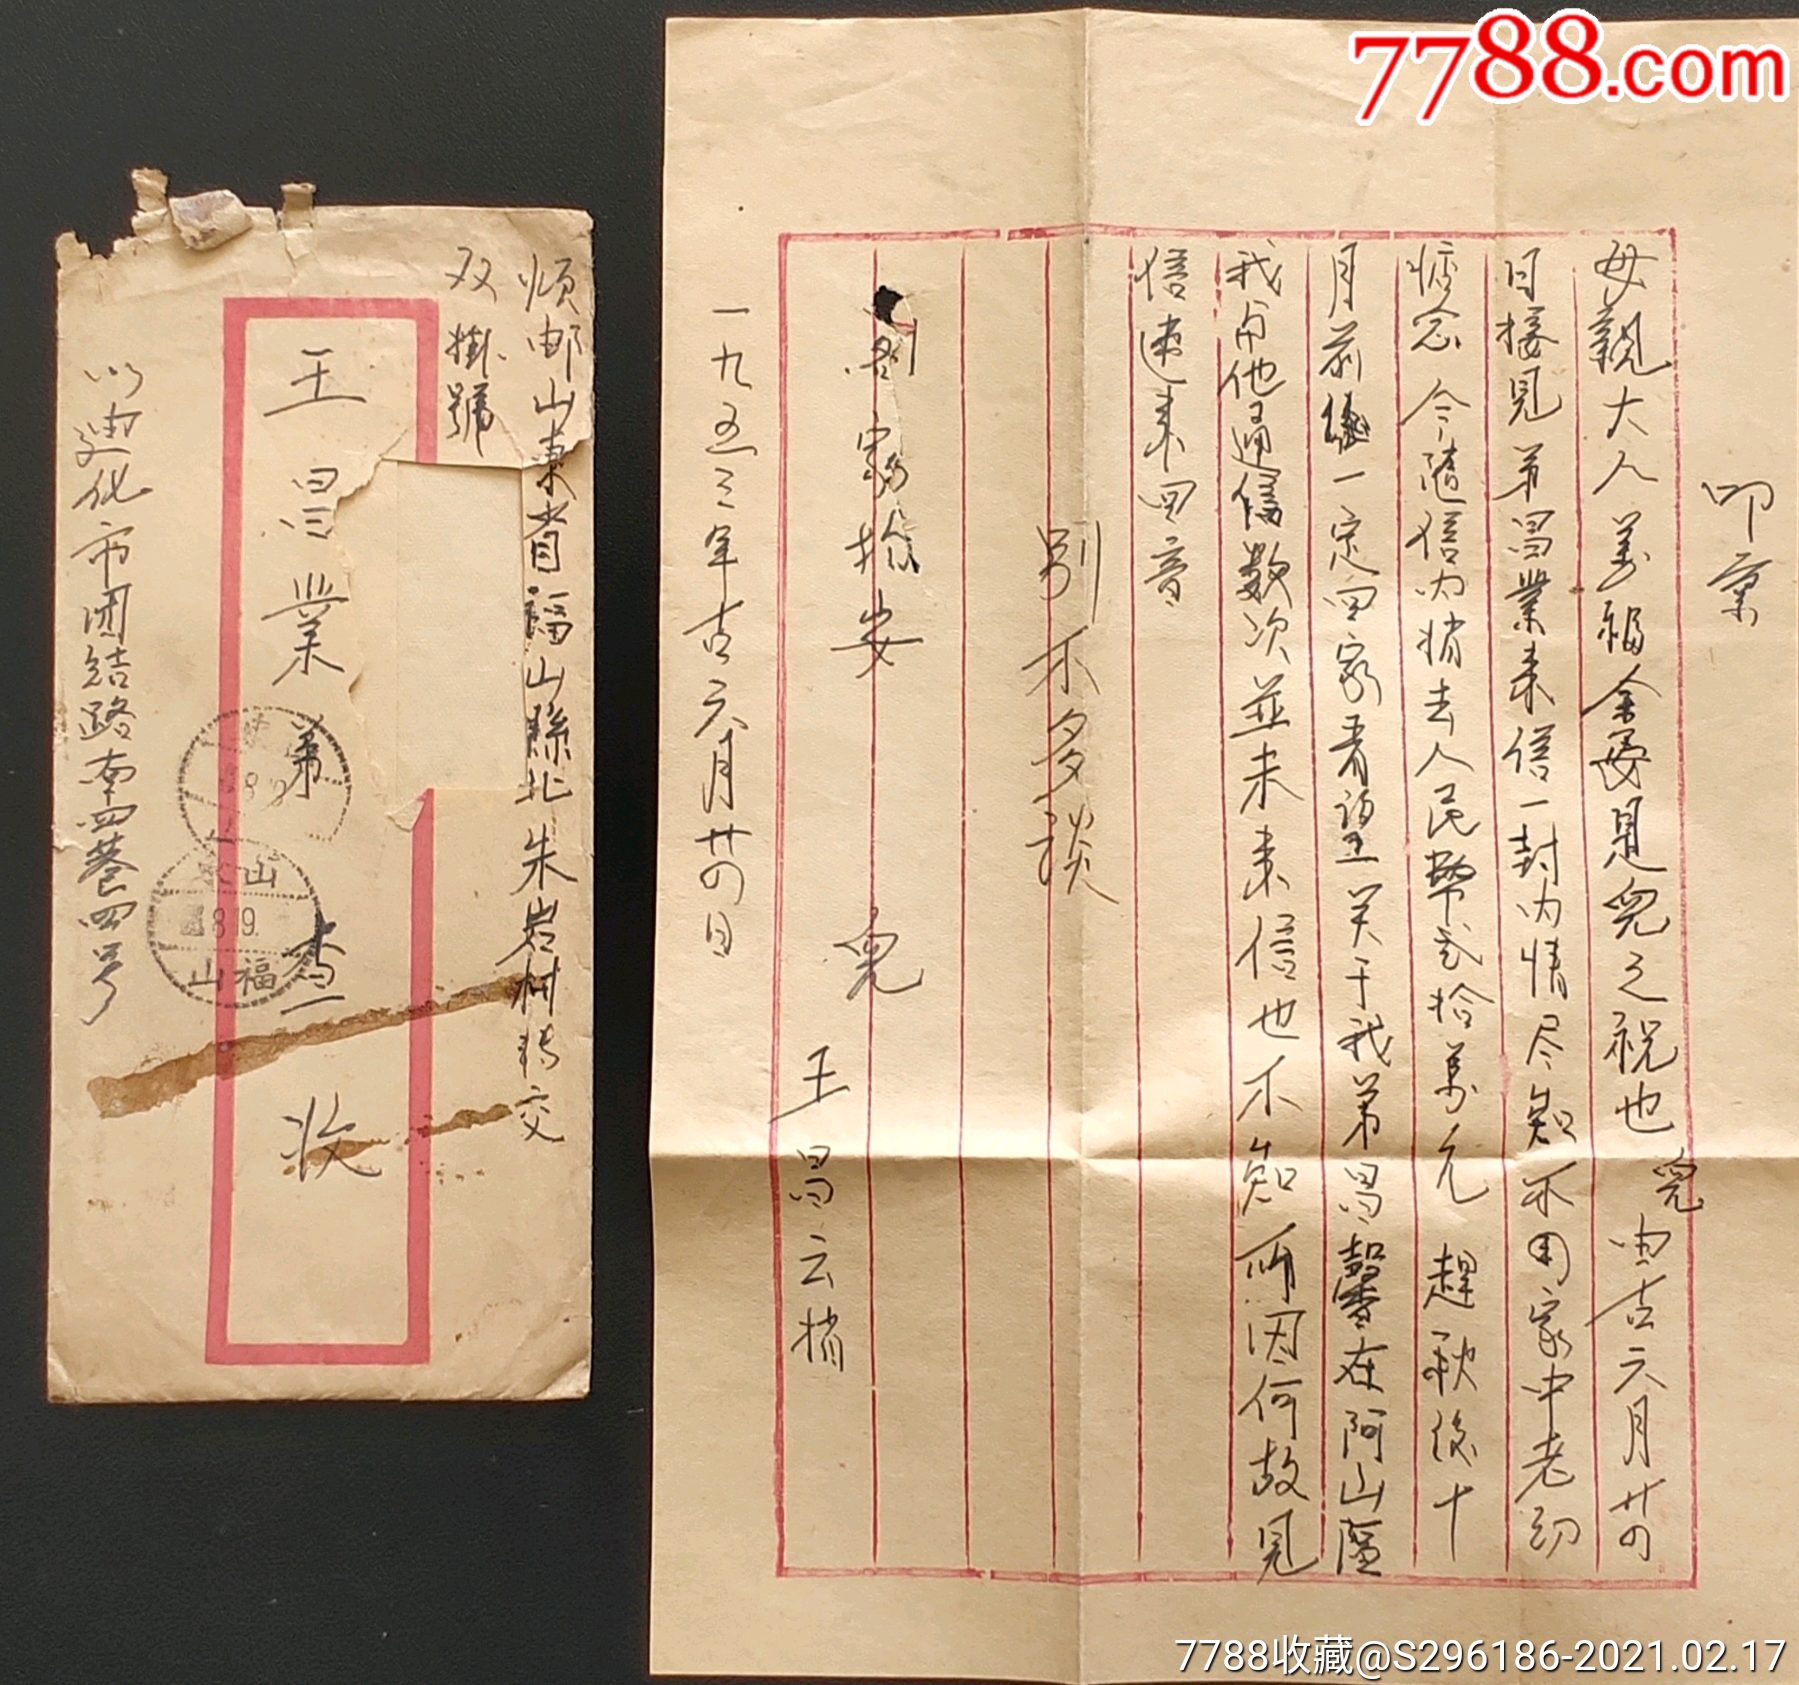 7788.com
叩禀
母親大人萬福金安是兒之祝也 兒由古六月廿四
日接見弟昌業來信一封内情尽知不用家中老幼
惦念今隨信内捎去人民幣弍拾萬元 趕秋後十
月前後一定回家看望关于我弟昌馨在阿山區
我与他通信数次並未来信也不知所因何故見
信速来回音
别不多談
刻
家务
安
兒 王昌云捎
一九五三年古六月廿四日
烦邮山東省福山縣北朱岩村转交
双掛號
王昌業弟 查收
迪化市团结路南四巷四号
8 9
山
8 19.
山福
7788收藏@S296186-2021.02.17